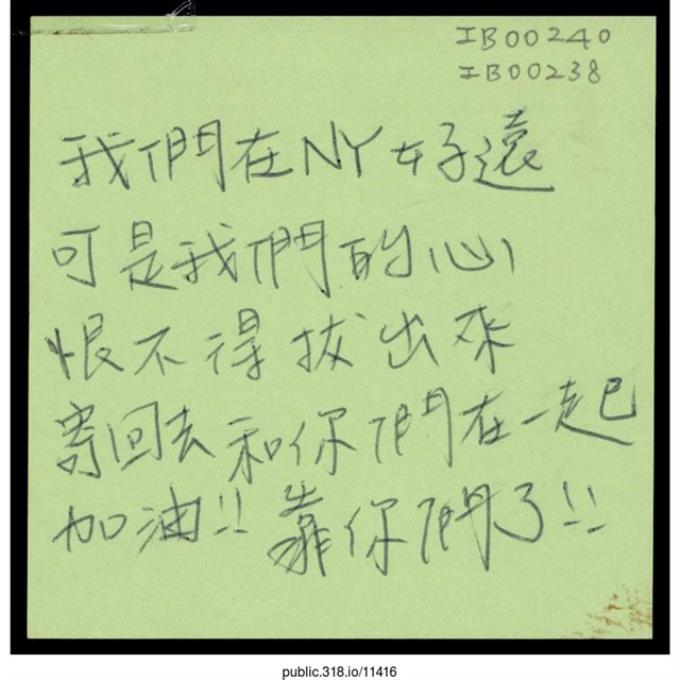 IB00240
IB00238
我們在NY好遠
可是我們的心
恨不得拔出來
寄回去和你們在一起
加油!! 靠你們了!!
public.318.io/11416